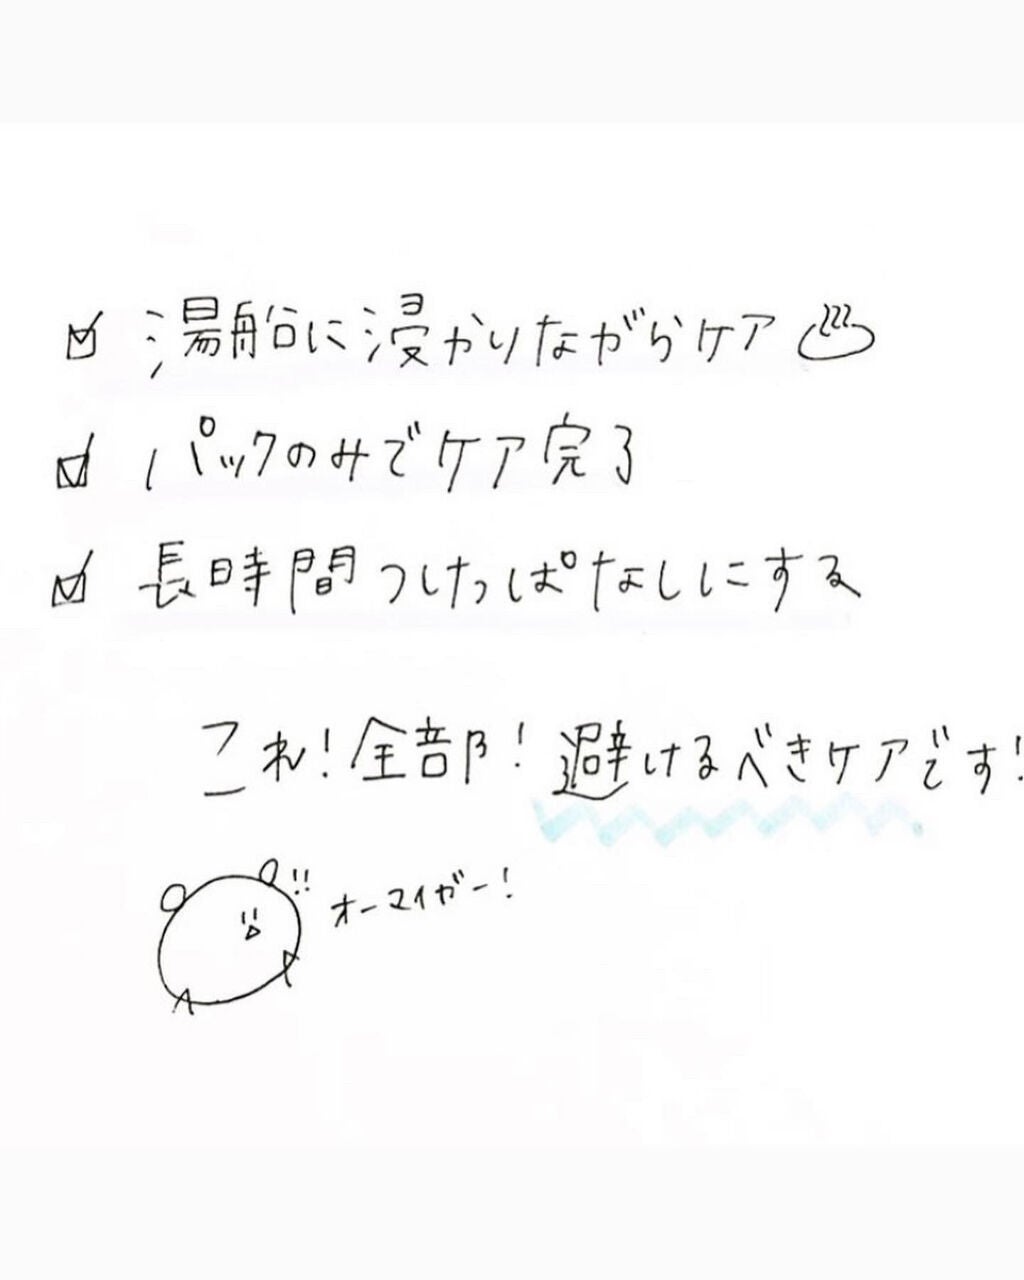 ☑ 湯船に浸かりながらケア♨
☑ パックのみでケア完了
☑ 長時間つけっぱなしにする
これ!全部!避けるべきケアです!
!! オーマイガー!